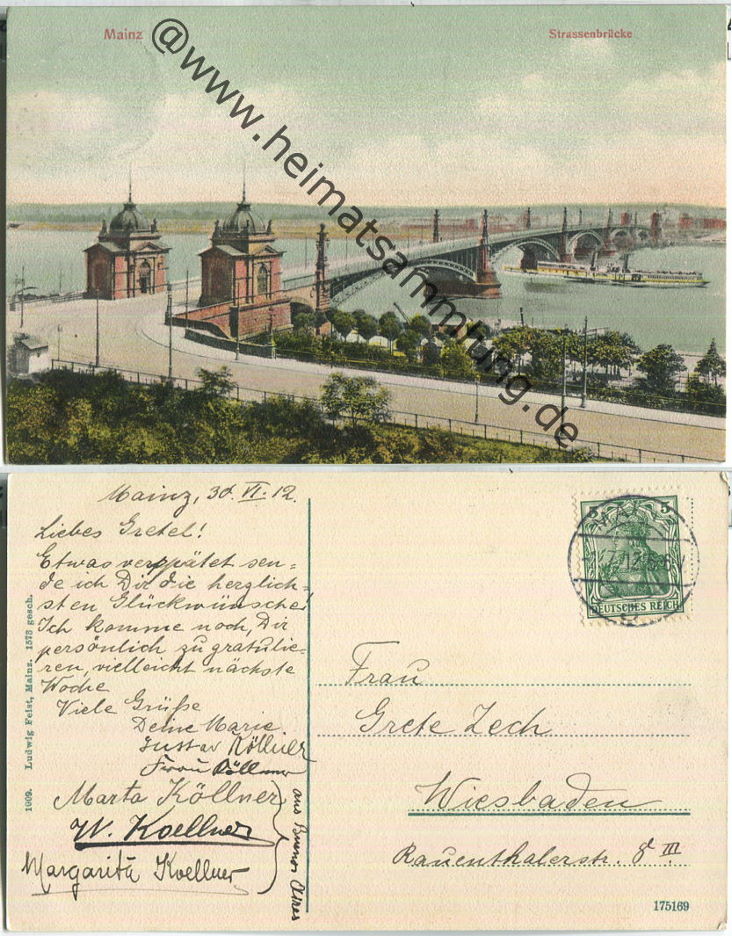 Mainz
Strassenbrücke
@www.heimatsammlung.de
Mainz, 30. VI. 12.
Liebes Gretel!
Etwas verspätet sen-
de ich Dir die herzlich
sten Glückwünsche!
Ich komme noch, Dir
persönlich zu gratulie-
ren, vielleicht nächste
Woche
Viele Grüße
Deine Marie
Gustav Köllner
Frau Köllner
Marta Köllner
W. Koellner
Margarita Koellner
aus Buenos Aires
1909. Ludwig Feist, Mainz. 1573 gesch.
5 5
MAINZ
DEUTSCHES REICH
Frau
Grete Zech
Wiesbaden
Rauenthalerstr. 8 III
175169